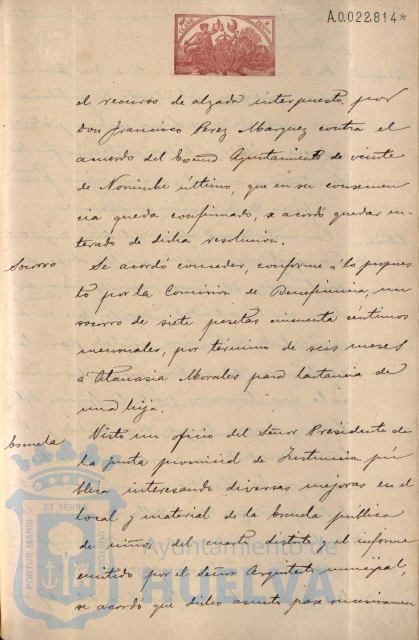 A.0.022.814*
el recurso de alzada interpuesto por
Don Francisco Perez Marquez contra el
acuerdo del Excmo. Ayuntamiento de veinte
de Noviembre último, que en su consecuen
cia queda confirmado, se acordó quedar en-
terado de dicha resolucion.
Socorro
Se acordó conceder, conforme á lo propues
to por la Comision de Beneficencia, un
socorro de siete pesetas cincuenta centimos
mensuales, por término de seis meses
á Atanasia Morales para lactancia de
una hija.
Escuela
Visto un oficio del Señor Presidente de
la junta provincial de Instruccion pú-
blica interesando diversas mejoras en el
local y material de la Escuela pública
de niños del cuarto distrito y el informe
emitido por el Señor Arquitecto municipal,
se acordó que dicho asunto pase nuevamen
PORTUS MARIS ET TERRE CUSTODIA
Ayuntamiento de
HUELVA